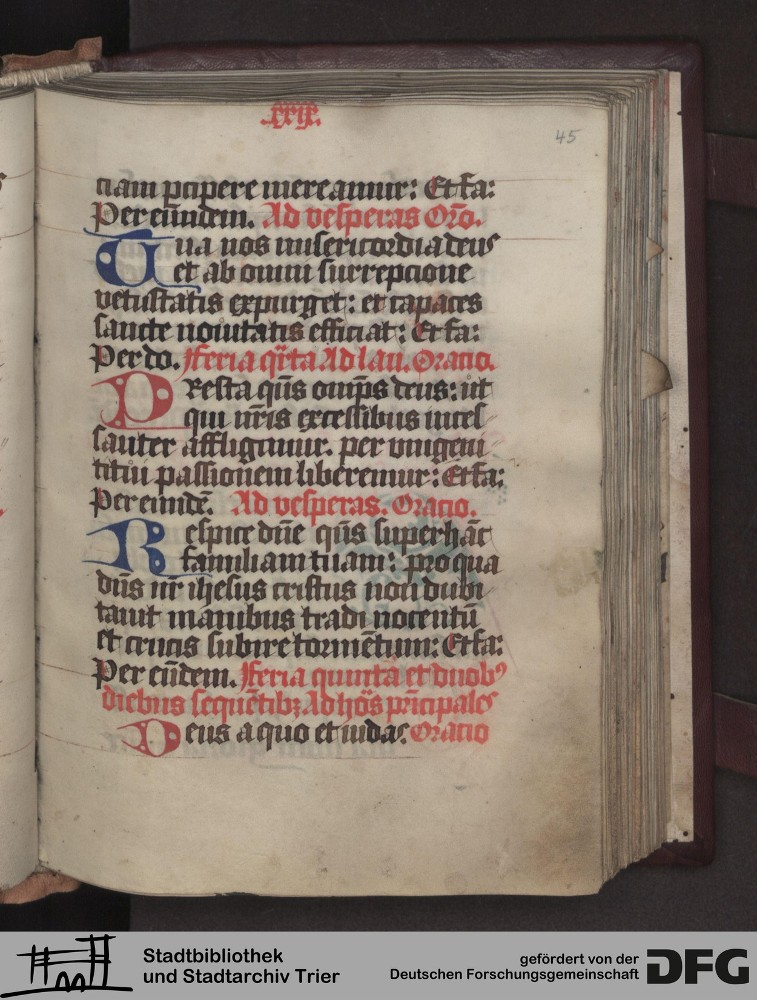 .xxix.
45
ciam pcipere mereamur: Et fa:
Per eūndem. Ad vesperas Orō.
Tua nos misericordia deus
et ab omni surrepcione
vetustatis expurget: et capaces
sancte nouitatis efficiat: Et fa:
Per do. Feria q̄rta Ad lau. Oratio.
Presta q̄s omp̄s deus: ut
qui nr̄is excessibus inces
santer affligimur. per unigeni
ti tui passionem liberemur: Et fa:
Per eundē. Ad vesperas. Oratio.
Respice dn̄e q̄s super hāc
familiam tuam: pro qua
dn̄s nr̄ ihesus cristus non dubi
tauit manibus tradi nocentū
et crucis subire tormētum: Et fa:
Per eūdem. Feria quinta et duobꝰ
diebus sequētibꝫ Ad hōs pn̄cipales
Deus a quo et iudas Oratio
Stadtbibliothek
und Stadtarchiv Trier
gefördert von der
Deutschen Forschungsgemeinschaft
DFG